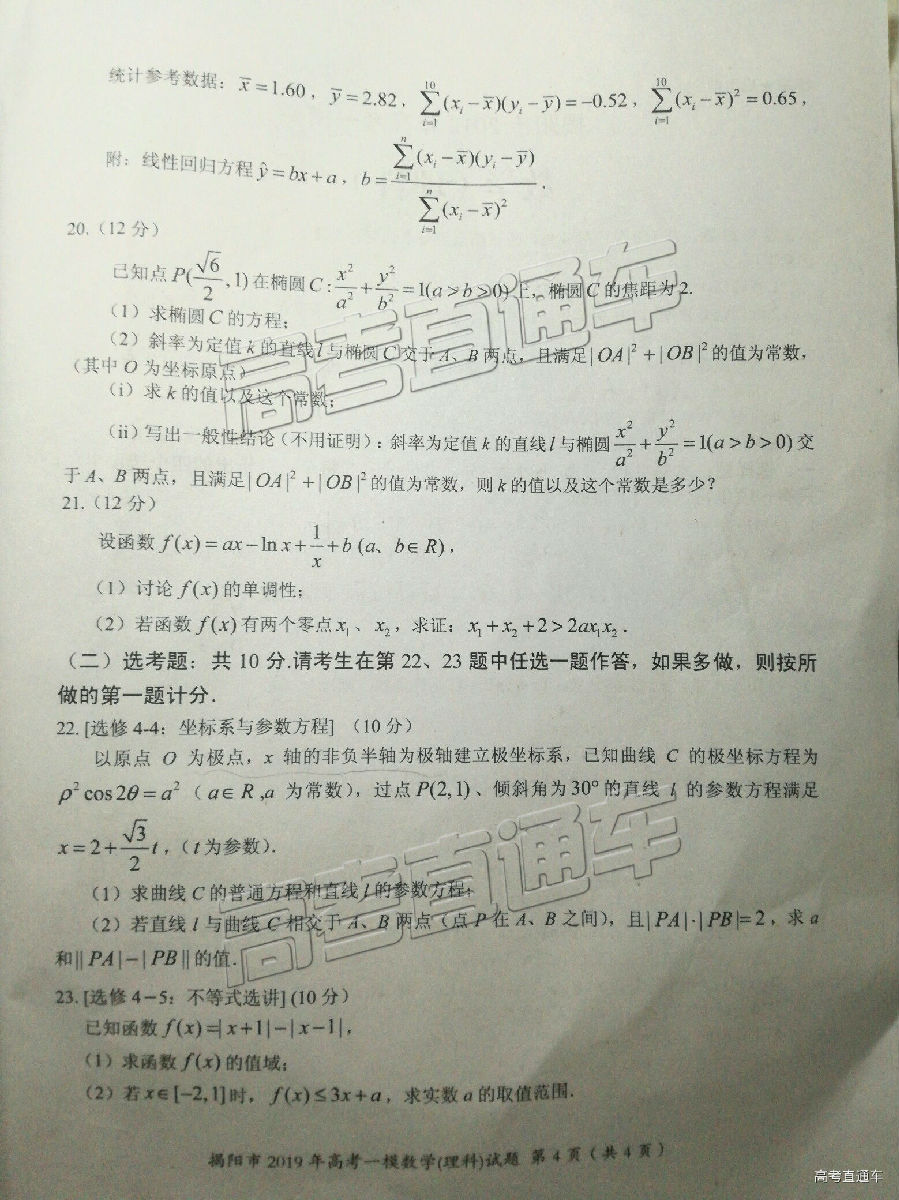 统计参考数据：x̄=1.60，ȳ=2.82，∑_{i=1}^{10}(x_i-x̄)(y_i-ȳ)=-0.52，∑_{i=1}^{10}(x_i-x̄)²=0.65，
附：线性回归方程ŷ=bx+a，b=∑_{i=1}^{n}(x_i-x̄)(y_i-ȳ)/∑_{i=1}^{n}(x_i-x̄)²．
20.（12 分）
已知点P(√6/2,1)在椭圆C:x²/a²+y²/b²=1(a>b>0)上，椭圆C的焦距为2.
（1）求椭圆C的方程；
（2）斜率为定值k的直线l与椭圆C交于A、B两点，且满足|OA|²+|OB|²的值为常数，
（其中O为坐标原点）
（i）求k的值以及这个常数；
（ii）写出一般性结论（不用证明）：斜率为定值k的直线l与椭圆x²/a²+y²/b²=1(a>b>0)交
于A、B两点，且满足|OA|²+|OB|²的值为常数，则k的值以及这个常数是多少？
21.（12 分）
设函数f(x)=ax-ln x+1/x+b (a、b∈R)，
（1）讨论f(x)的单调性；
（2）若函数f(x)有两个零点x₁、x₂，求证：x₁+x₂+2>2ax₁x₂．
（二）选考题：共 10 分.请考生在第 22、23 题中任选一题作答，如果多做，则按所
做的第一题计分．
22. [选修 4-4：坐标系与参数方程] （10 分）
以原点 O 为极点，x 轴的非负半轴为极轴建立极坐标系，已知曲线 C 的极坐标方程为
ρ²cos2θ=a²（a∈R,a 为常数），过点P(2,1)、倾斜角为30°的直线 l 的参数方程满足
x=2+√3/2 t，（t为参数）．
（1）求曲线C的普通方程和直线l的参数方程；
（2）若直线l与曲线C相交于A、B两点（点P在A、B之间），且|PA|·|PB|=2，求a
和||PA|-|PB||的值．
23. [选修 4-5：不等式选讲] (10 分）
已知函数f(x)=|x+1|-|x-1|，
（1）求函数f(x)的值域；
（2）若x∈[-2,1]时，f(x)≤3x+a，求实数a的取值范围.
揭阳市 2019 年高考一模数学(理科)试题 第 4 页（共 4 页）
高考直通车
高考直通车
高考直通车